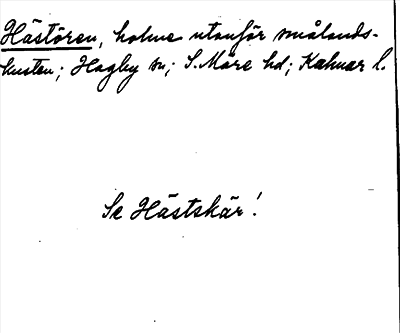 Hästören, holme utanför smålands-
kusten; Hagby sn; S. Möre hd; Kalmar l.
Se Hästskär!